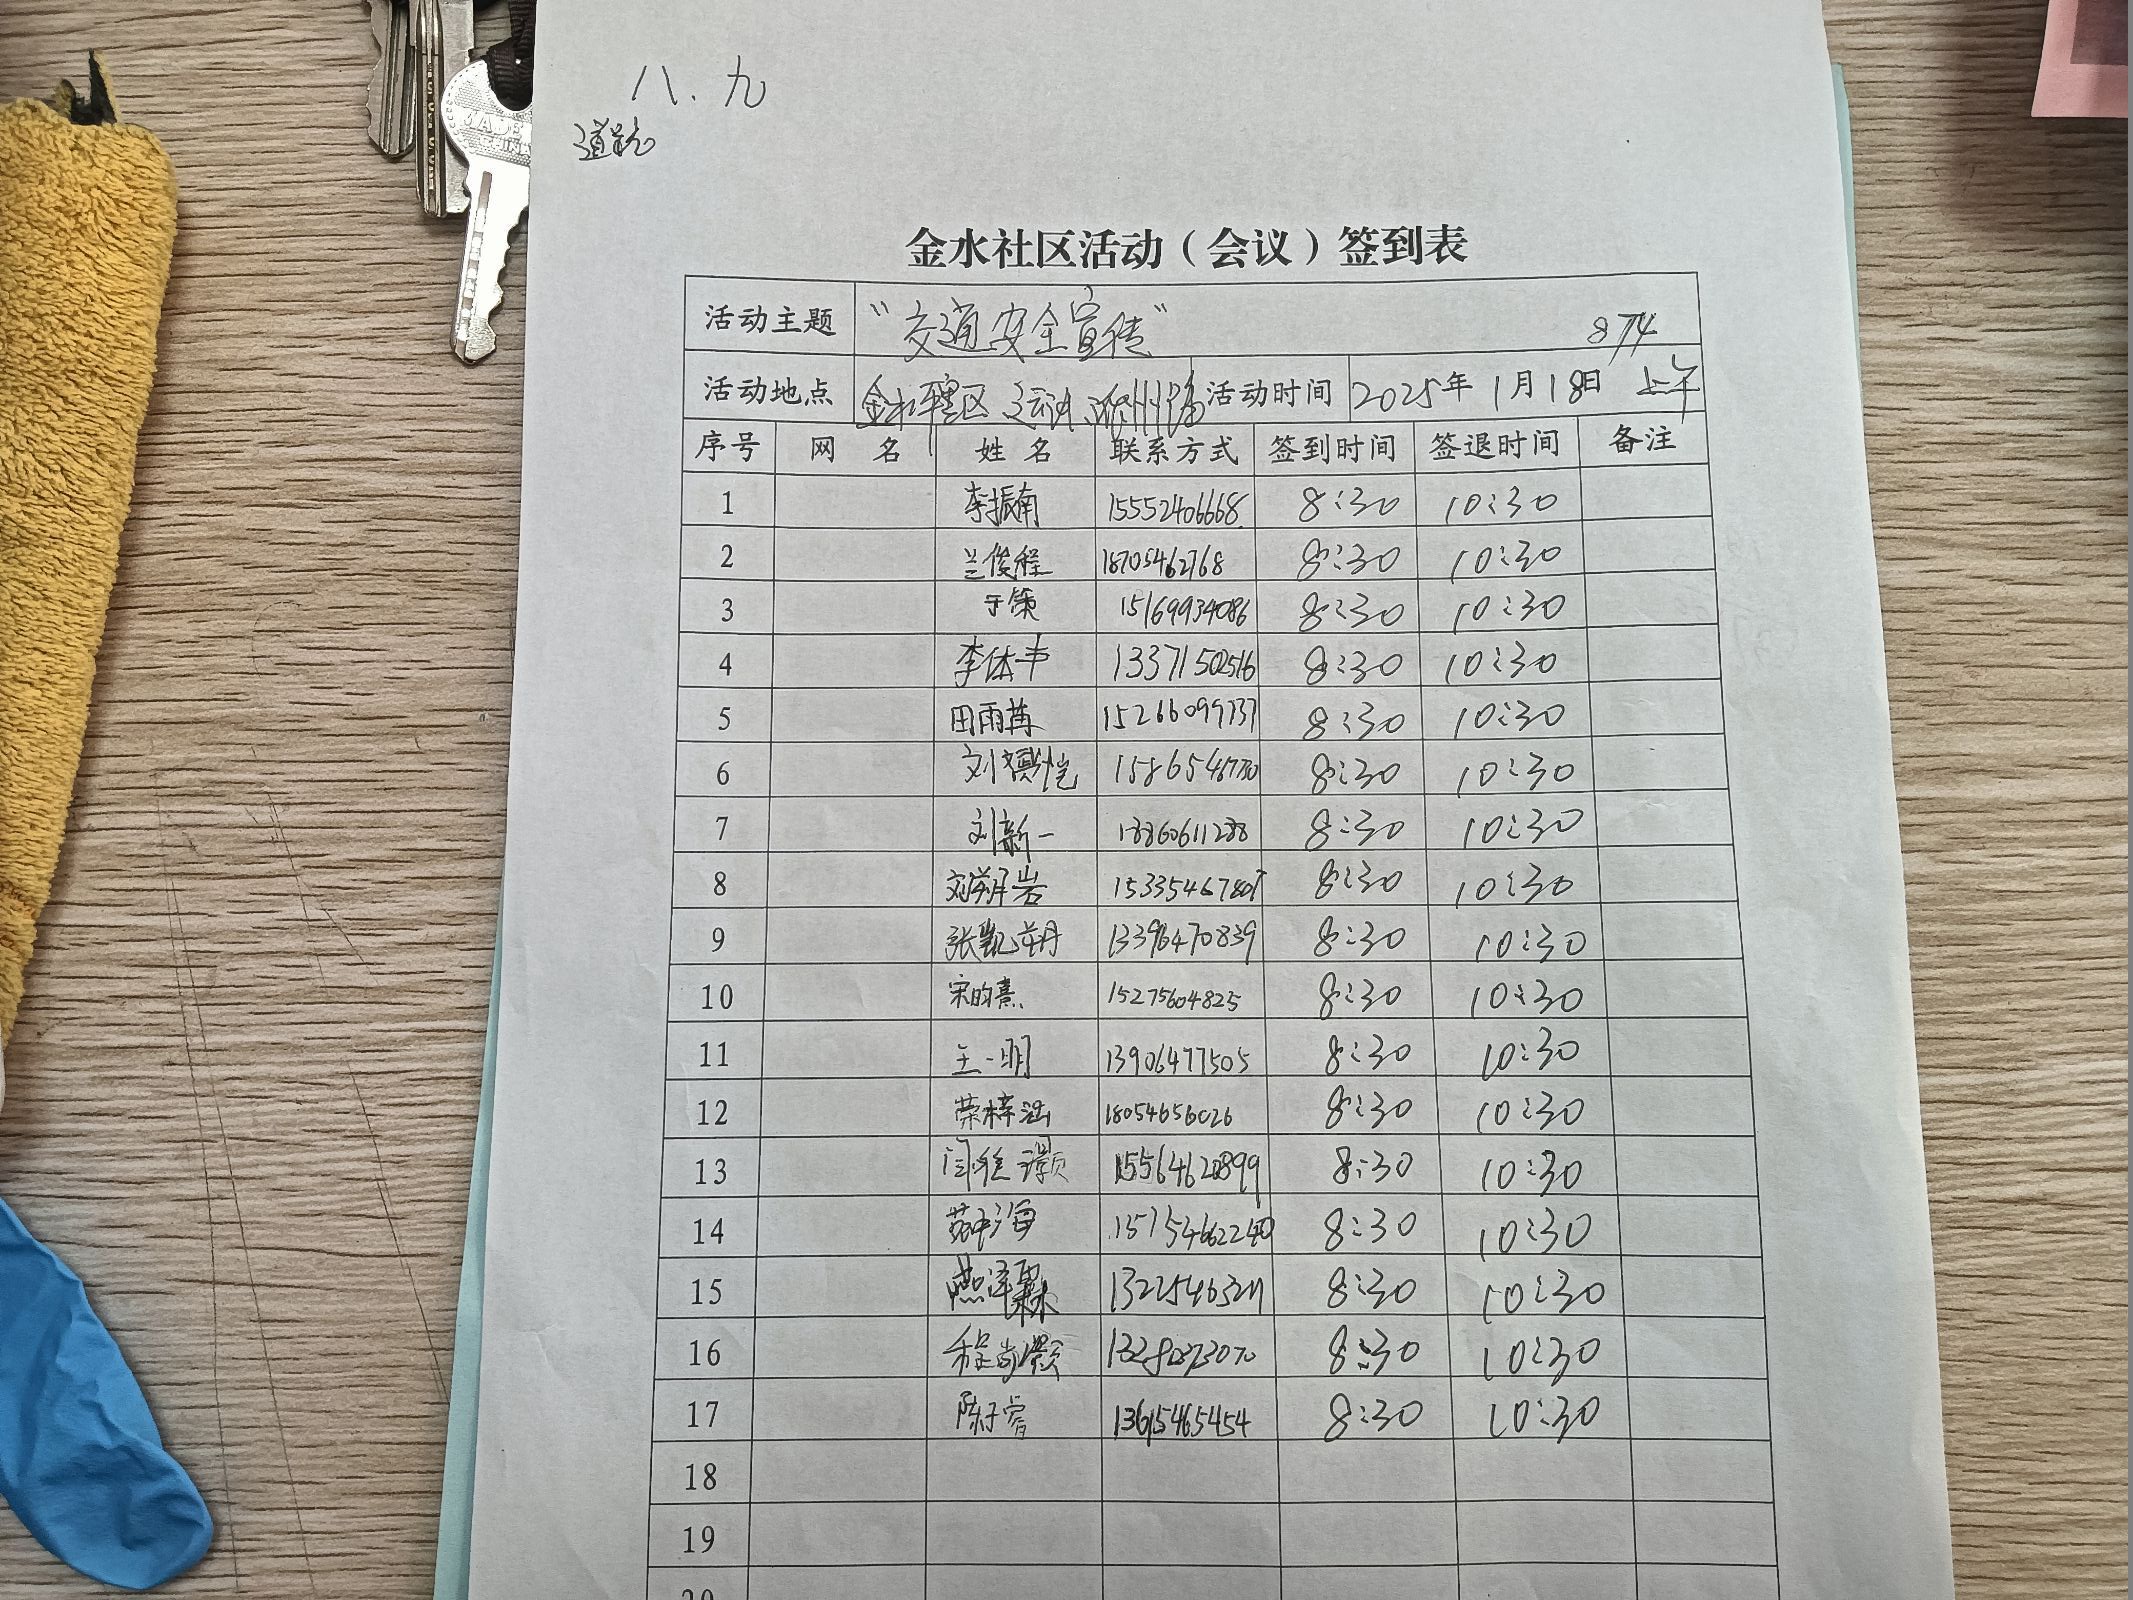 八.九
金水社区活动（会议）签到表
活动主题 “交通安全宣传” 8:30
活动地点 金水辖区 活动时间 2025年1月18日 上午
序号 网 名 姓 名 联系方式 签到时间 签退时间 备注
1 李振南 15552406668 8:30 10:30
2 兰俊程 18705462768 8:30 10:30
3 于策 15169934086 8:30 10:30
4 李体丰 13371502516 8:30 10:30
5 田雨苒 15266099737 8:30 10:30
6 8:30 10:30
7 刘新一 8:30 10:30
8 8:30 10:30
9 张凯朔 13396470839 8:30 10:30
10 宋昀熹 15275604825 8:30 10:30
11 王一明 13906477505 8:30 10:30
12 荣梓涵 18054656026 8:30 10:30
13 15564620899 8:30 10:30
14 8:30 10:30
15 8:30 10:30
16 8:30 10:30
17 陈子睿 13615465454 8:30 10:30
18
19
20